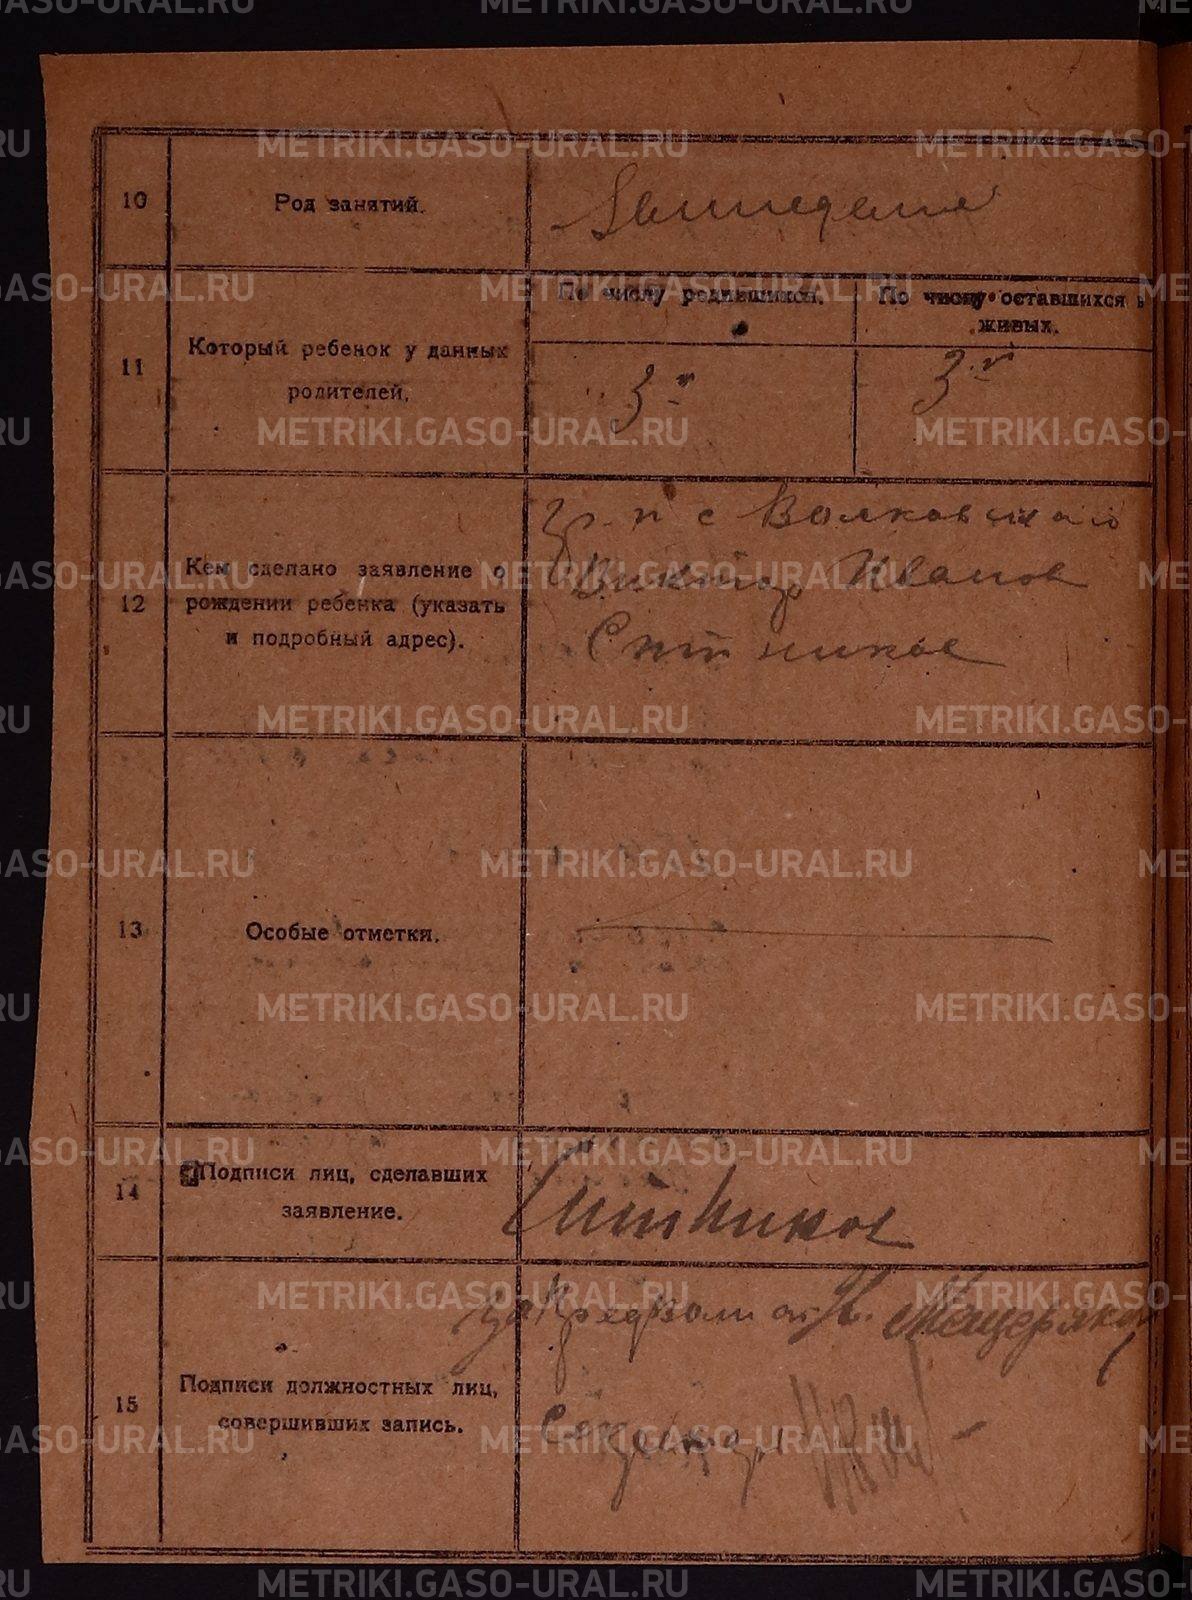 10
Род занятий.
Земледелие
11
Который ребенок у данных
родителей.
По числу родившихся.
По числу оставшихся в
живых.
3-й
3-й
12
Кем сделано заявление о
рождении ребенка (указать
и подробный адрес).
гр-н с Волковского
Виктор Иванов
Ситников
13
Особые отметки.
14
Подписи лиц, сделавших
заявление.
Ситников
15
Подписи должностных лиц,
совершивших запись.
за Предволисп. Мещеряков
Секретарь
METRIKI.GASO-URAL.RU